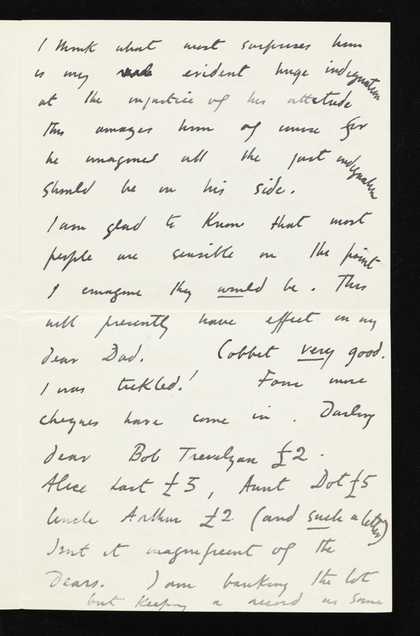 I think what most surprises him
is my evident huge indignation
at the injustice of his attitude
This amazes him of course for
he imagined all the just indignation
should be on his side.
I am glad to know that most
people are sensible on the point
I imagine they would be. This
will presently have effect on my
dear Dad. Cobbet very good.
I was tickled! Four more
cheques have come in. Darling
dear Bob Trevelyan £2.
Alice Hart £3, Aunt Dot £5
Uncle Arthur £2 (and such a letter)
Isnt it magnificent of the
Dears. I am banking the lot
but keeping a record as some